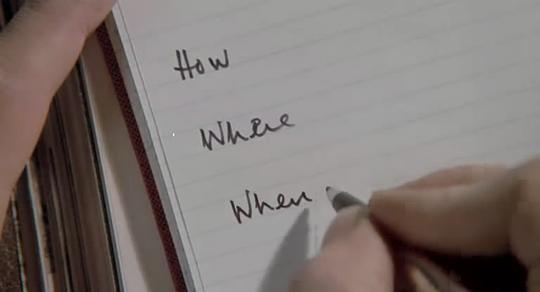 How
Where
When